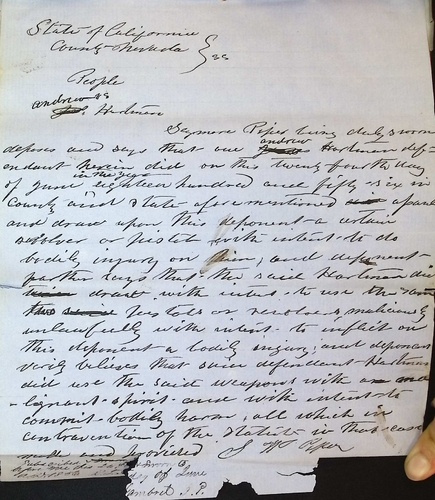 State of California
County Nevada } ss
People
vs
andrew
Hartman
Seymore Pipes being duly sworn
andrew
deposes and says that one Hartman def-
endant herein did on this twenty fourth day
in the year
of June eighteen hundred and fifty six in
County and State aforementioned
and draw upon this deponent a certain
revolver or pistol with intent to do
bodily injury on him, and deponent
further says that the said Hartman did
draw with intent to use the same
pistols or revolvers maliciously
unlawfully with intent to inflict on
this deponent a bodily injury, and deponent
verily believes that said defendant Hartman
did use the said weapons with a
-lignant spirit and with intent to
commit bodily harm, all which in
contravention of the Statute in that case
made and provided S
day of June
J. P.